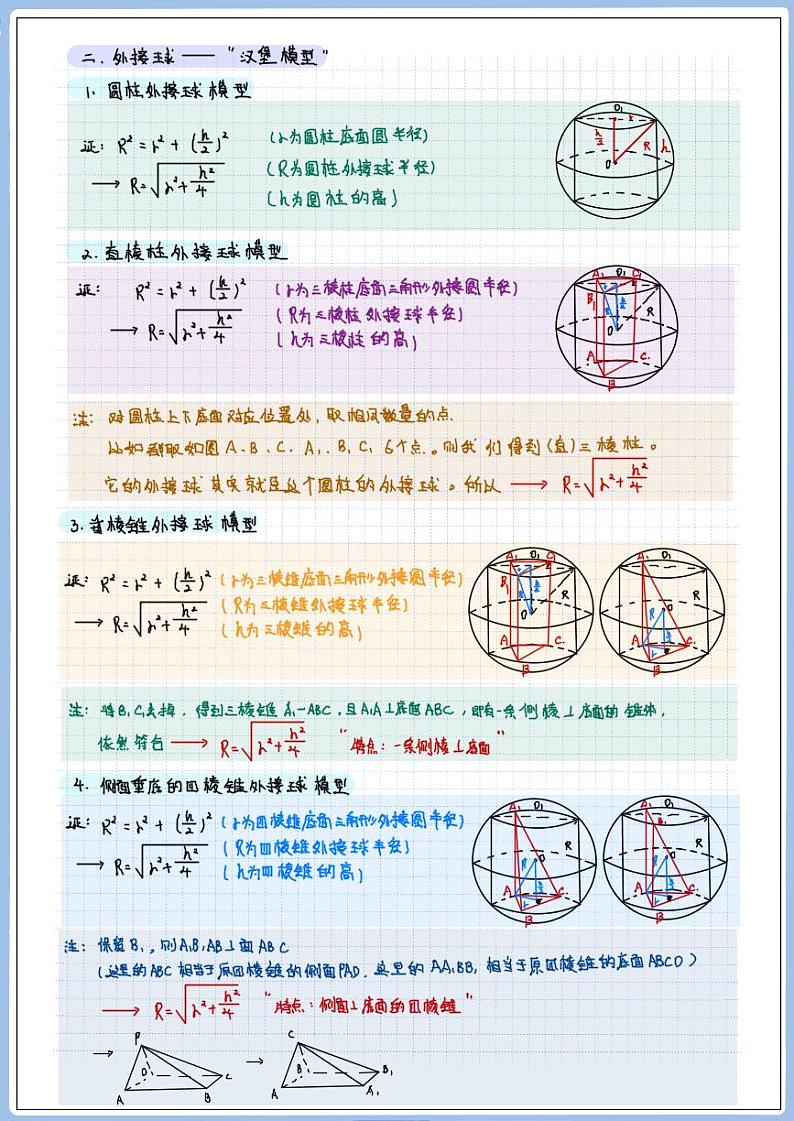 二. 外接球 —— "汉堡模型"
1. 圆柱外接球模型
证: R² = r² + (h/2)² (r为圆柱底面圆半径)
→ R=√(r²+h²/4) (R为圆柱外接球半径)
(h为圆柱的高)
O₁ r h/2 R h O
2. 直棱柱外接球模型
证: R² = r² + (h/2)² (r为三棱柱底面三角形外接圆半径)
→ R=√(r²+h²/4) (R为三棱柱外接球半径)
(h为三棱柱的高)
A₁ O₁ C₁ B₁ R O A C B
注: 对圆柱上下底面对应位置处,取相同数量的点.
比如都取如图 A、B、C、A₁、B₁、C₁ 6个点.。则我们得到(直)三棱柱。
它的外接球其实就是这个圆柱的外接球。所以 → R=√(r²+h²/4)
3. 直棱锥外接球模型
证: R² = r² + (h/2)² (r为三棱锥底面三角形外接圆半径)
→ R=√(r²+h²/4) (R为三棱锥外接球半径)
(h为三棱锥的高)
A₁ O₁ C₁ B₁ R O A C B
A₁ O₁ R O A C B
注: 将B₁C₁去掉, 得到三棱锥 A₁-ABC, 且A₁A⊥底面ABC, 即有一条侧棱⊥底面的锥体,
依然符合 → R=√(r²+h²/4) "特点: 一条侧棱⊥底面"
4. 侧面垂底的四棱锥外接球模型
证: R² = r² + (h/2)² (r为四棱锥底面三角形外接圆半径)
→ R=√(r²+h²/4) (R为四棱锥外接球半径)
(h为四棱锥的高)
A₁ O₁ R O A C B
A₁ O₁ B₁ R O A C B
注: 保留B₁, 则A₁B₁AB⊥面ABC
(这里的ABC相当于原四棱锥的侧面PAD, 这里的 AA₁BB₁ 相当于原四棱锥的底面ABCD)
→ R=√(r²+h²/4) "特点: 侧面⊥底面的四棱锥"
→ P D C A B → C B B₁ A A₁